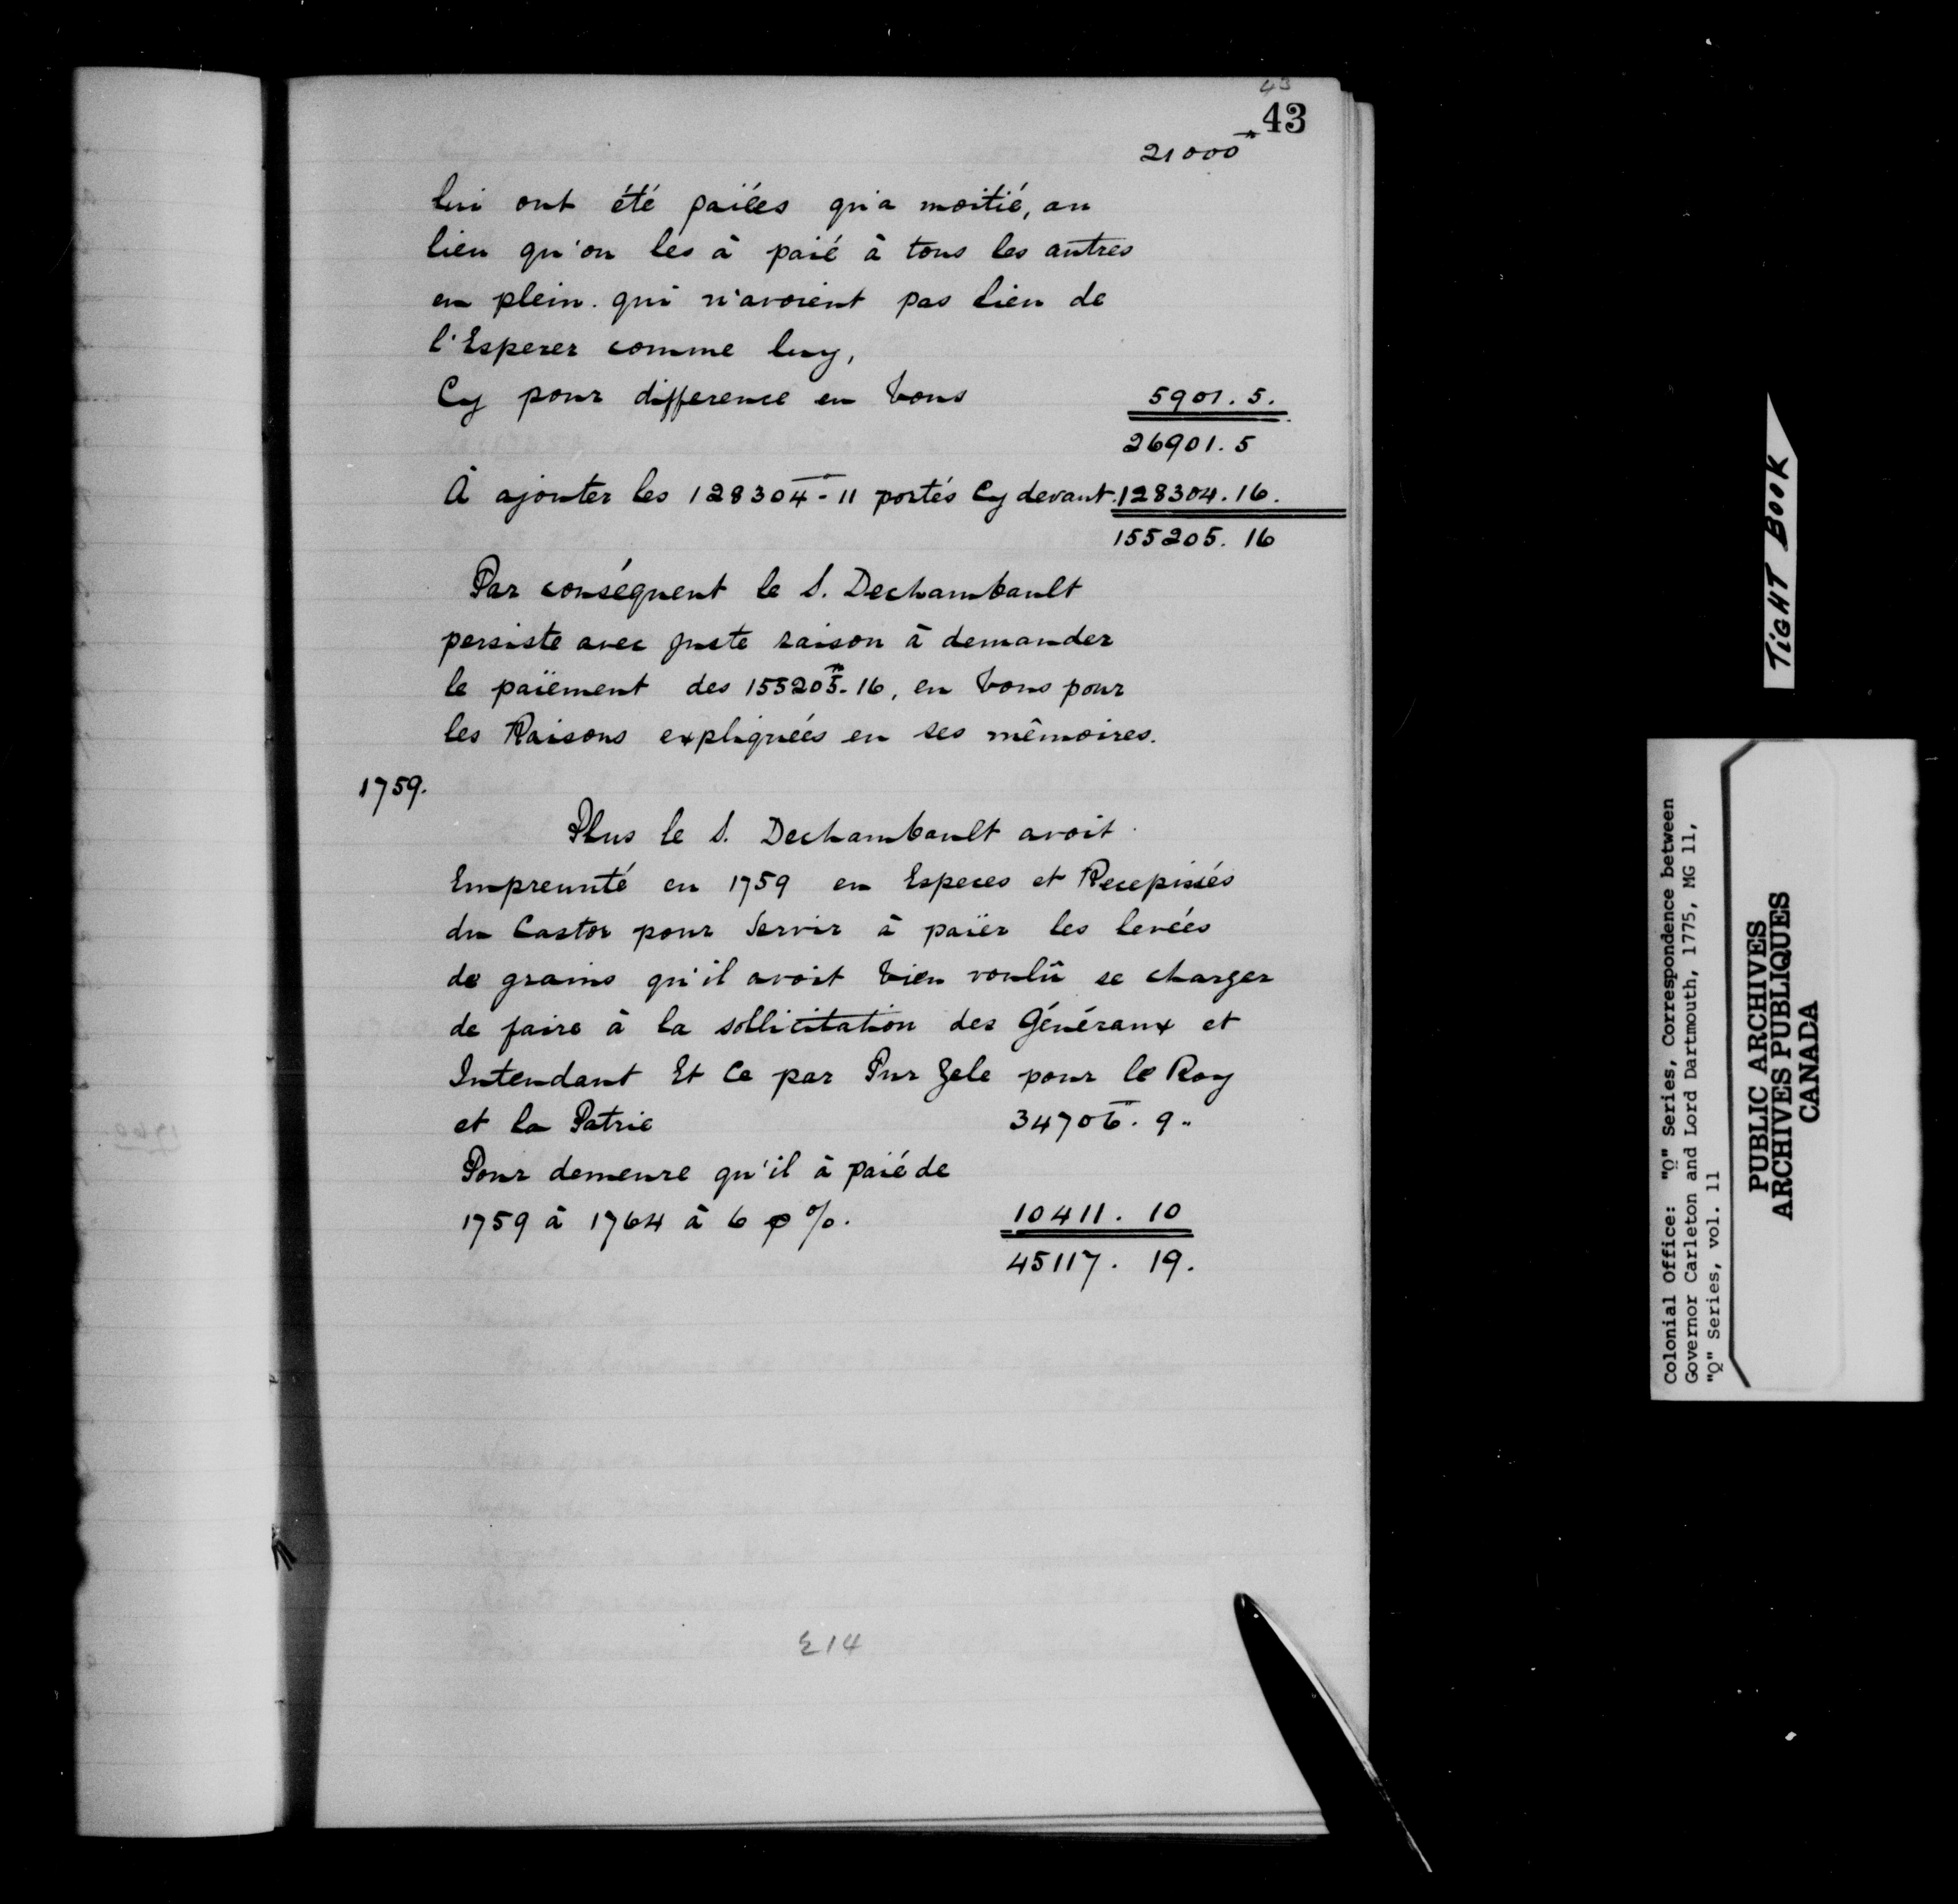 43
43
21000ᵗᵗ
lui ont été païées qu'a moitié, au
lieu qu'on les à paié à tous les autres
en plein. qui n'avoient pas lieu de
l'Esperer comme luy,
Cy pour difference en bons 5901. 5.
26901. 5
À ajouter les 128304 - 11 portés Cy devant. 128304. 16.
155205. 16
Par conséquent le S. Dechambault
persiste avec juste raison à demander
le païement des 155205ᵗᵗ. 16, en bons pour
les Raisons expliqueés en ses mêmoires.
1759.
Plus le S. Dechambault avoit
Empreunté en 1759 en Especes et Recepissés
du Castor pour Servir à païer les leveés
de grains qu'il avoit bien voulû se charger
de faire à la sollicitation des Généraux et
Intendant Et Ce par Pur Zele pour le Roy
et la Patrie 34706ᵗᵗ. 9..
Pour demeure qu'il à paié de
1759 à 1764 à 6 p %. 10411. 10
45117. 19.
E14
TiGHT BOOK
Colonial Office: "Q" Series, Correspondence between
Governor Carleton and Lord Dartmouth, 1775, MG 11,
"Q" Series, vol. 11
PUBLIC ARCHIVES
ARCHIVES PUBLIQUES
CANADA